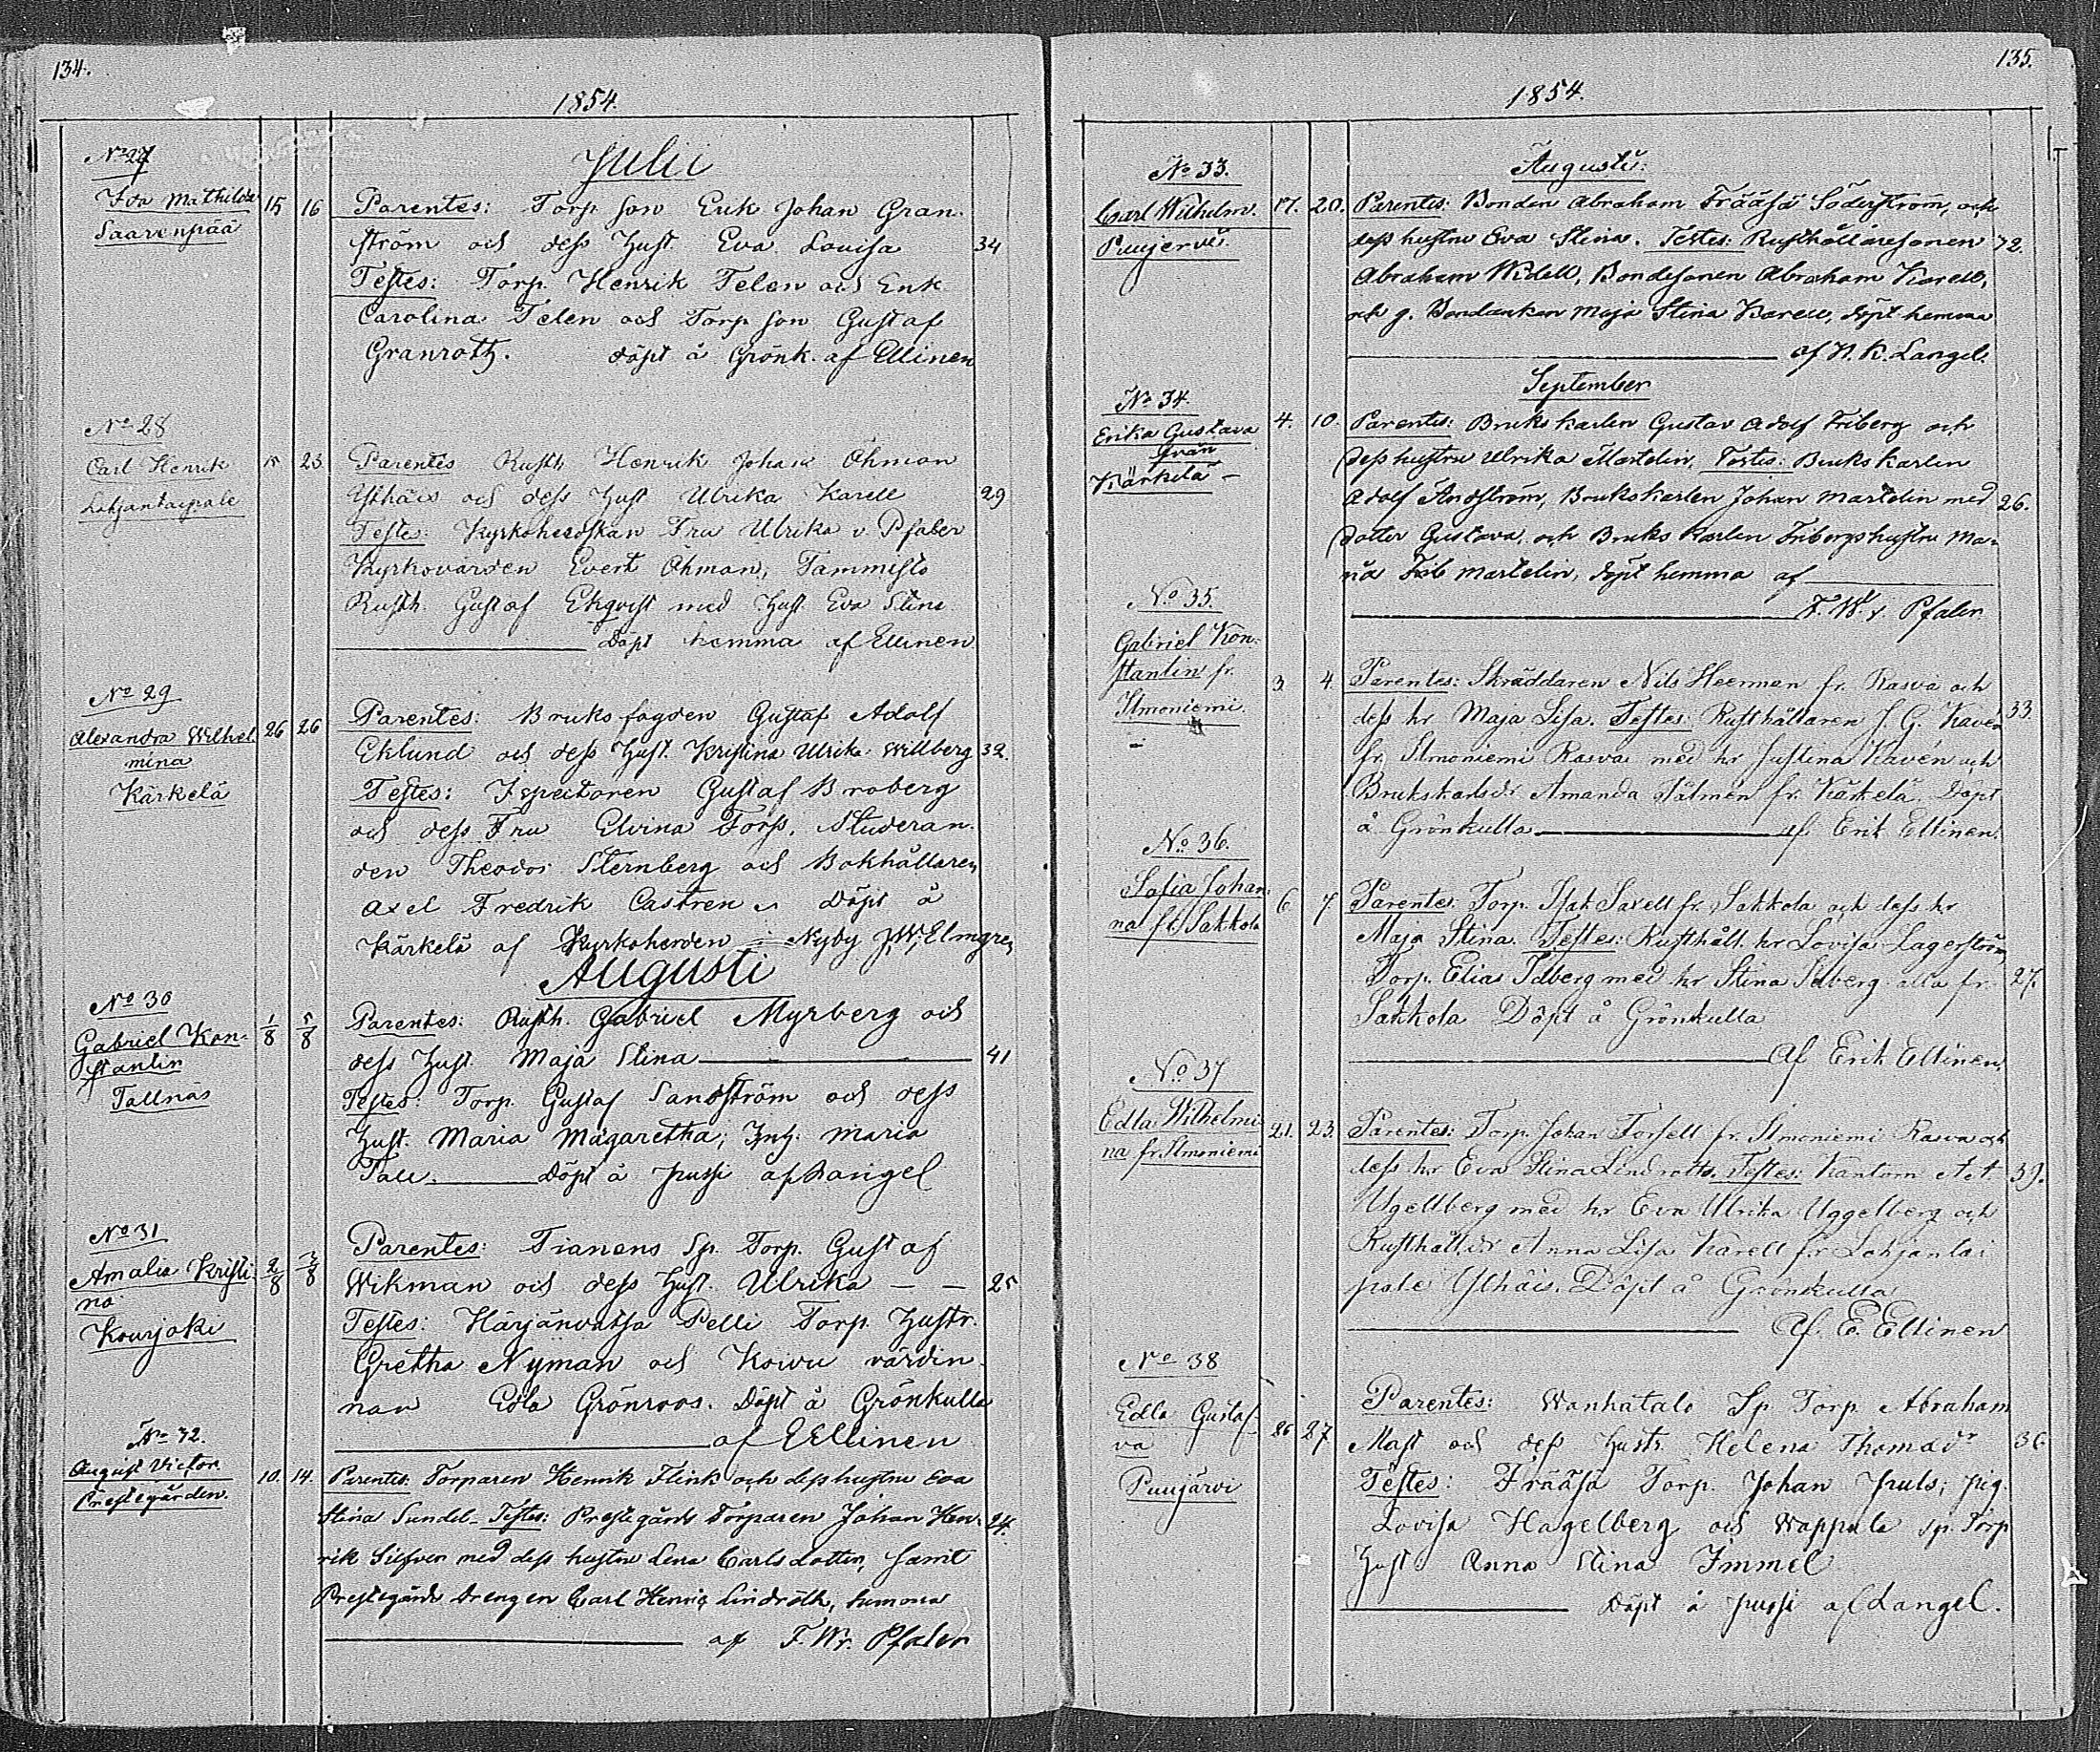 134.
1854.
No 27
Julii
Ida Mathilda 15 16 Parentes: Torp son Erik Johan Gran-
Saarenpää
ström och dess Hust Eva Lovisa 34
Testes: Torp. Henrik Telen och Enk
Carolina Telen och Torp son Gustaf
Granroth. döpt å Grönk. af Ellinen
No 28
Carl Henrik 15 23 Parentes Rusth Henrik Johan Öhman
Lohjantaipale
Ylhäis och dess Hust Ulrika Karell 29
Teste: Kyrkoherdskan Fru Ulrika v. Pfaler
Kyrkovärden Evert Öhman, Tammisto
Rusth. Gustaf Ekqvist med Hust Eva Stina
Döpt hemma af Ellinen
No 29
Alexandra Wilhel- 26 26 Parentes: Bruks fogden Gustaf Adolf
mina
Kärkelä
Eklund och dess Hust. Kristina Ulrika Willberg 32.
Testes: Ispectoren Gustaf Broberg
och dess Fru Elvina Forss, Studeran-
den Theodor Sternberg och Bokhållaren
Axel Fredrik Castren Döpt å
Kärkelä af Kyrkoherden i Nyby J.W. Elmgren
Augusti
No 30
Gabriel Kon- 1/8 5/8 Parentes: Rusth. Gabriel Myrberg och
stantin
Tallnäs
dess Hust. Maja Stina 41
Testes: Torp. Gustaf Sandström och dess
Hust. Maria Magaretha; Inh. Maria
Tall. Döpt å Pussi af Langel
No 31
Amalia Kristi- 2/8 3/8 Parentes: Tianens Sp. Torp. Gustaf
na
Kourjoki
Wikman och dess Hust. Ulrika 25
Testes: Härjänvatsa Pelli Torp. Hustr.
Gretha Nyman och Koivu värdin-
nan Edla Grönroos. Döpt å Grönkulla
af Ellinen
No 32.
August Victor 10. 14. Parentes: Torparen Henrik Flink och dess hustru Eva
Prestegården.
Stina Sundel. Testes: Prestegårds Torparen Johan Hen- 24.
rik Silfver med dess hustru Lena Carlsdotter, samt
Prestegårds drengen Carl Henric Lindroth, hemma
af F. W. v. Pfaler
135.
1854.
No 33.
Augusti:
Carl Wilhelm. 17. 20. Parentes: Bonden Abraham Frääsä Söderström, och
Puujervi.
dess hustru Eva Stina. Testes: Rusthållaresonen 42.
Abraham Widell, Bondesonen Abraham Karell,
och g. Bondenkan Maja Stina Karell, döpt hemma
af H. K. Langel.
September
No 34.
Erika Gustava 4. 10. Parentes: Bruks karlen Gustav Adolf Friberg och
från
Kärkelä
dess hustru Ulrika Martelin, Testes: Bruks karlen
Adolf Andström, Brukskarlen Johan Martelin med 26.
dotter Gustava, och Bruks karlen Fribergs hustru Ma-
ria Martelin, döpt hemma af
F. W. v. Pfaler
No 35.
Gabriel Kon- 3 4. Parentes: Skräddaren Nils Heerman fr. Rasva och
stantin fr.
Ilmoniemi.
dess hr Maja Lisa. Testes: Rusthållaren J. G. Kavén 33.
fr. Ilmoniemi Rasva med hr Justina Kavén och
Brukskarlsdr Amanda Tälmén fr. Kärkelä. Döpt
å Grönkulla af Erik Ellinen.
No 36.
Sofia Johan- 6 7 Parentes: Torp. Isak Savell fr. Sakkola och dess hr
na fr. Sakkola
Maja Stina. Testes: Rusthåll. hr Lovisa Lagerström
Torp. Elias Idberg med hr Stina Idberg alla fr. 27.
Sakkola Döpt å Grönkulla
Af Erik Ellinen.
No 37
Edla Wilhelmi- 21. 23. Parentes: Torp. Johan Forsell fr. Ilmoniemi Rasva och
na fr. Ilmoniemi
dess hr Eva Stina Lindroths. Testes: Kantorn Act. 39.
Uggellberg med hr Eva Ulrika Uggelberg och
Rusthåll. dr Anna Lisa Karell fr Lohjantai-
pale Ylhäis. Döpt å Grönkulla
Af. E. Ellinen
No 38
Edla Gustaf- 26 27 Parentes: Wanhatalo Sp Torp Abraham
va
Puujärvi
Mast och dess Hustr. Helena Thomasdr 36
Testes: Frääsä Torp. Johan Juuls; pig.
Lovisa Hagelberg och Wappula sp. Torp
Hust Anna Stina Immel
Döpt å Pussi af Langel.